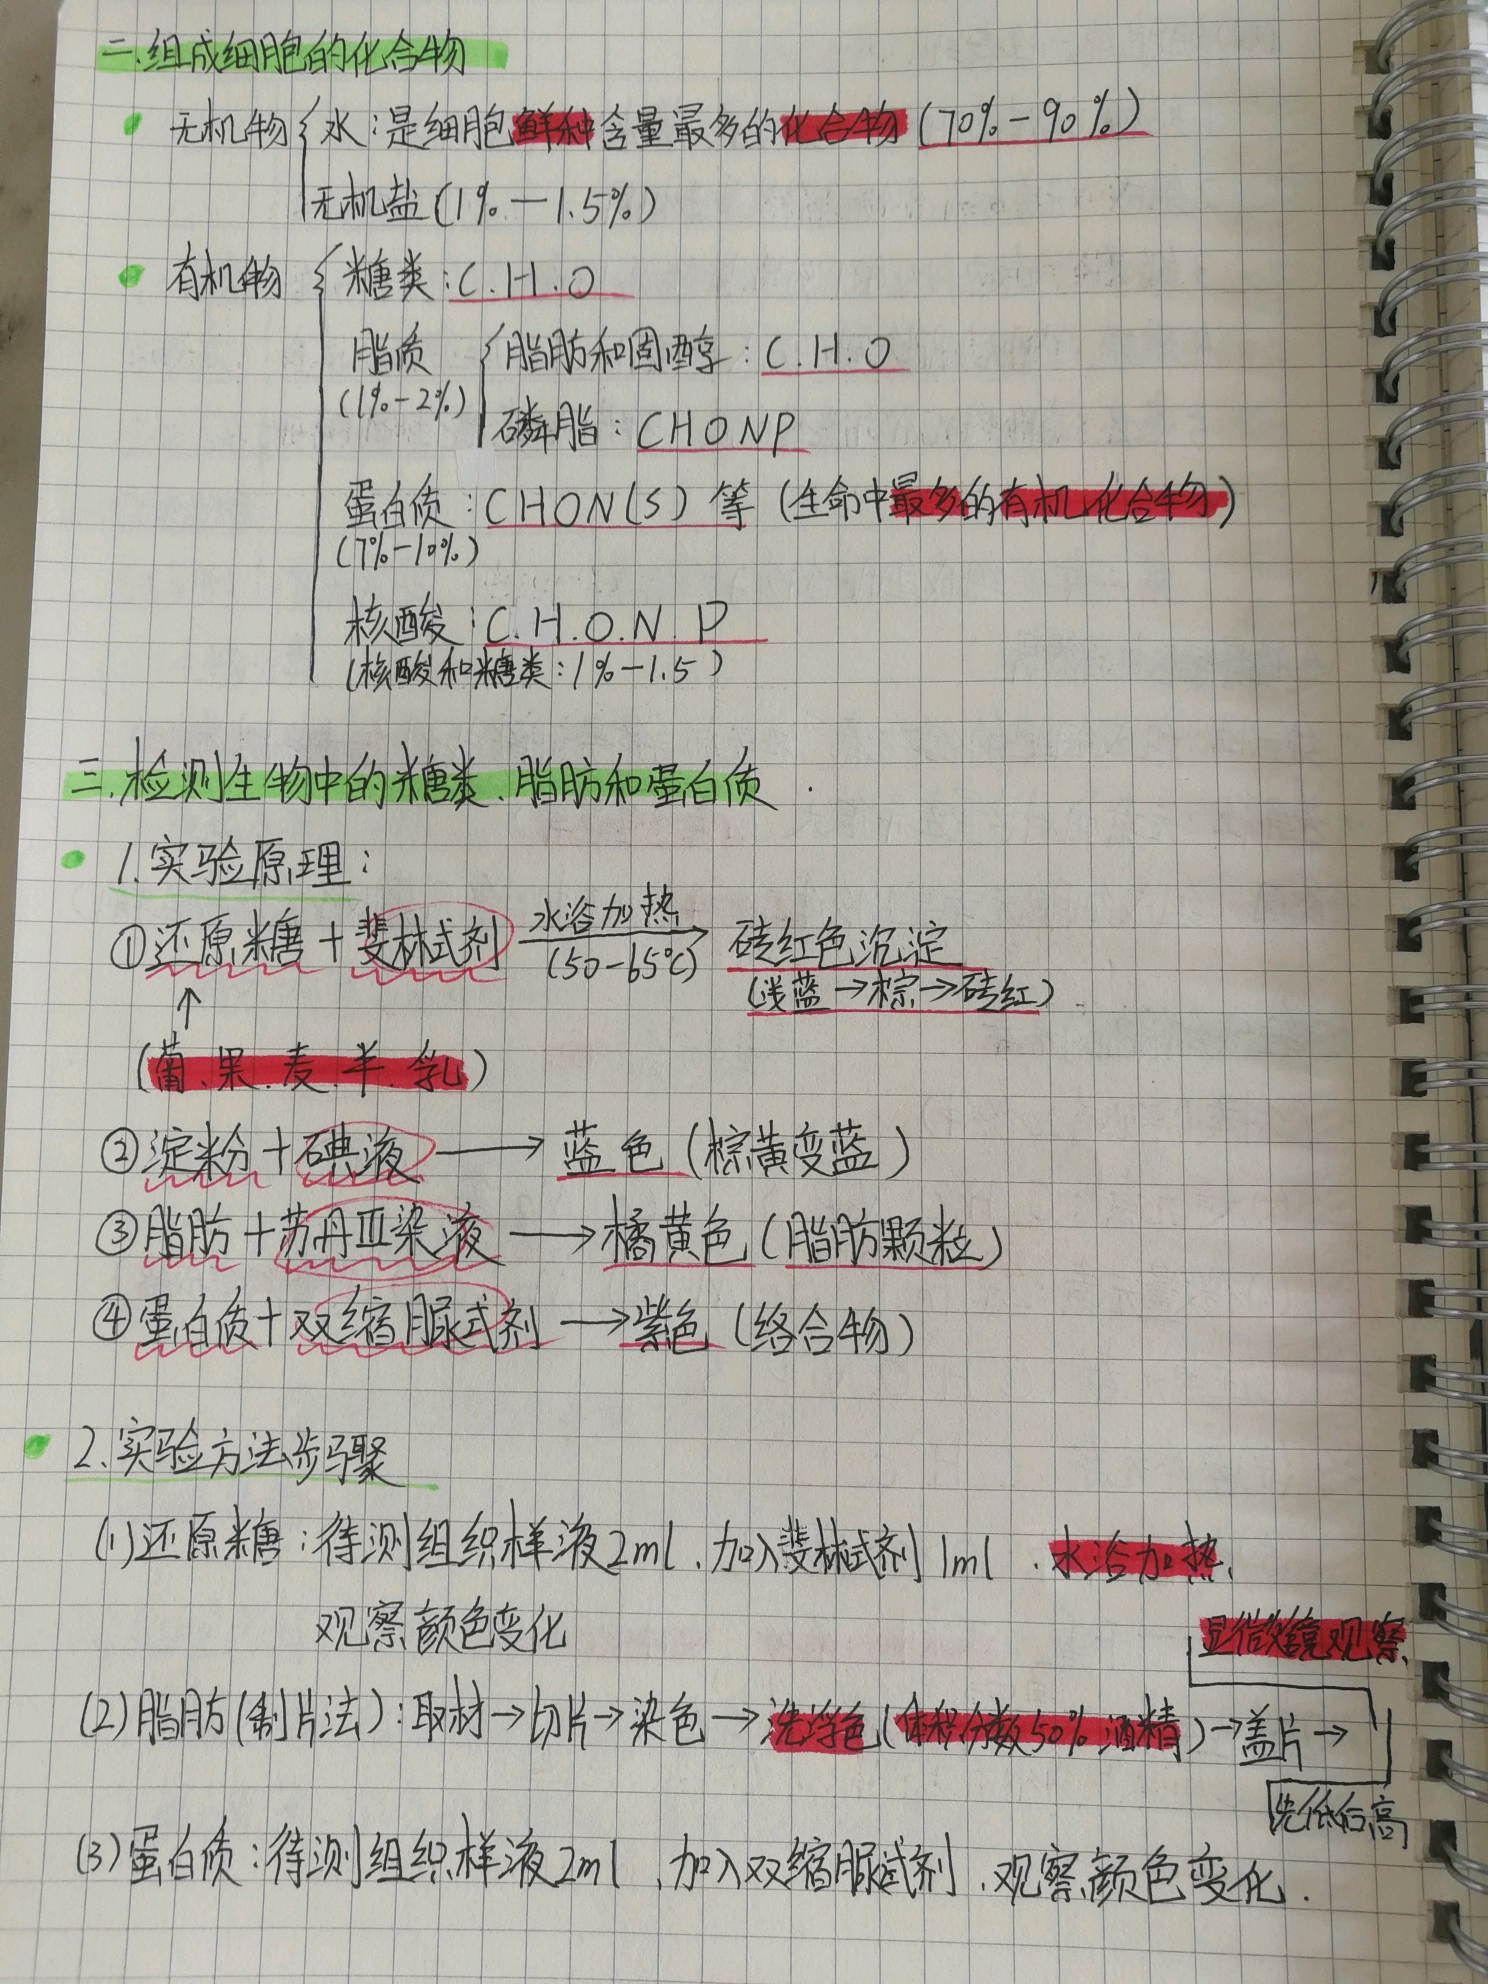 二.组成细胞的化合物
无机物 水:是细胞鲜种含量最多的化合物(70%-90%)
无机盐(1%-1.5%)
有机物 糖类:C.H.O
脂质 脂肪和固醇:C.H.O
(1%-2%)
磷脂:CHONP
蛋白质:CHON(S)等(生命中最多的有机化合物)
(7%-10%)
核酸:C.H.O.N.P
(核酸和糖类:1%-1.5)
三.检测生物中的糖类、脂肪和蛋白质
1.实验原理:
①还原糖+斐林试剂 水浴加热 (50-65℃) → 砖红色沉淀
(浅蓝→棕→砖红)
↑
(葡.果.麦.半.乳)
②淀粉+碘液→蓝色(棕黄变蓝)
③脂肪+苏丹Ⅲ染液→橘黄色(脂肪颗粒)
④蛋白质+双缩脲试剂→紫色(络合物)
2.实验方法步骤
(1)还原糖:待测组织样液2ml、加入斐林试剂1ml、水浴加热、
观察颜色变化
显微镜观察
(2)脂肪(制片法):取材→切片→染色→洗浮色(体积分数50%酒精)→盖片→
先低后高
(3)蛋白质:待测组织样液2ml、加入双缩脲试剂、观察颜色变化.